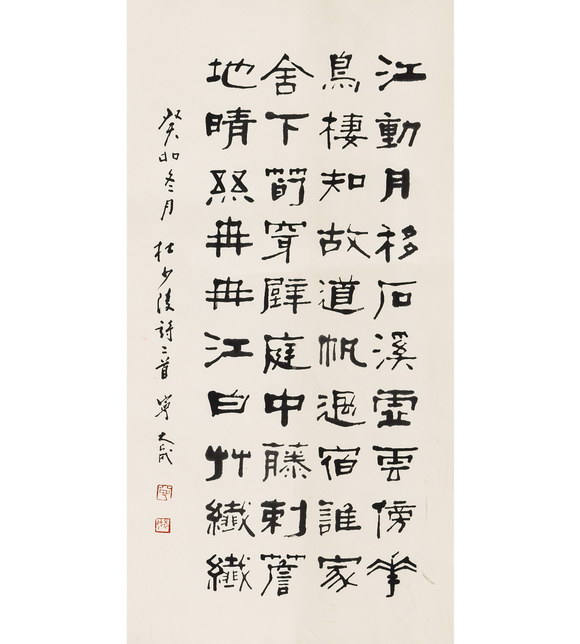 江動月移石溪虛雲傍華
鳥棲知故道帆過宿誰家
舍下筍穿壁庭中藤刺簷
地晴絲冉冉江白艸纖纖
癸卯冬月 杜少陵詩二首 寧